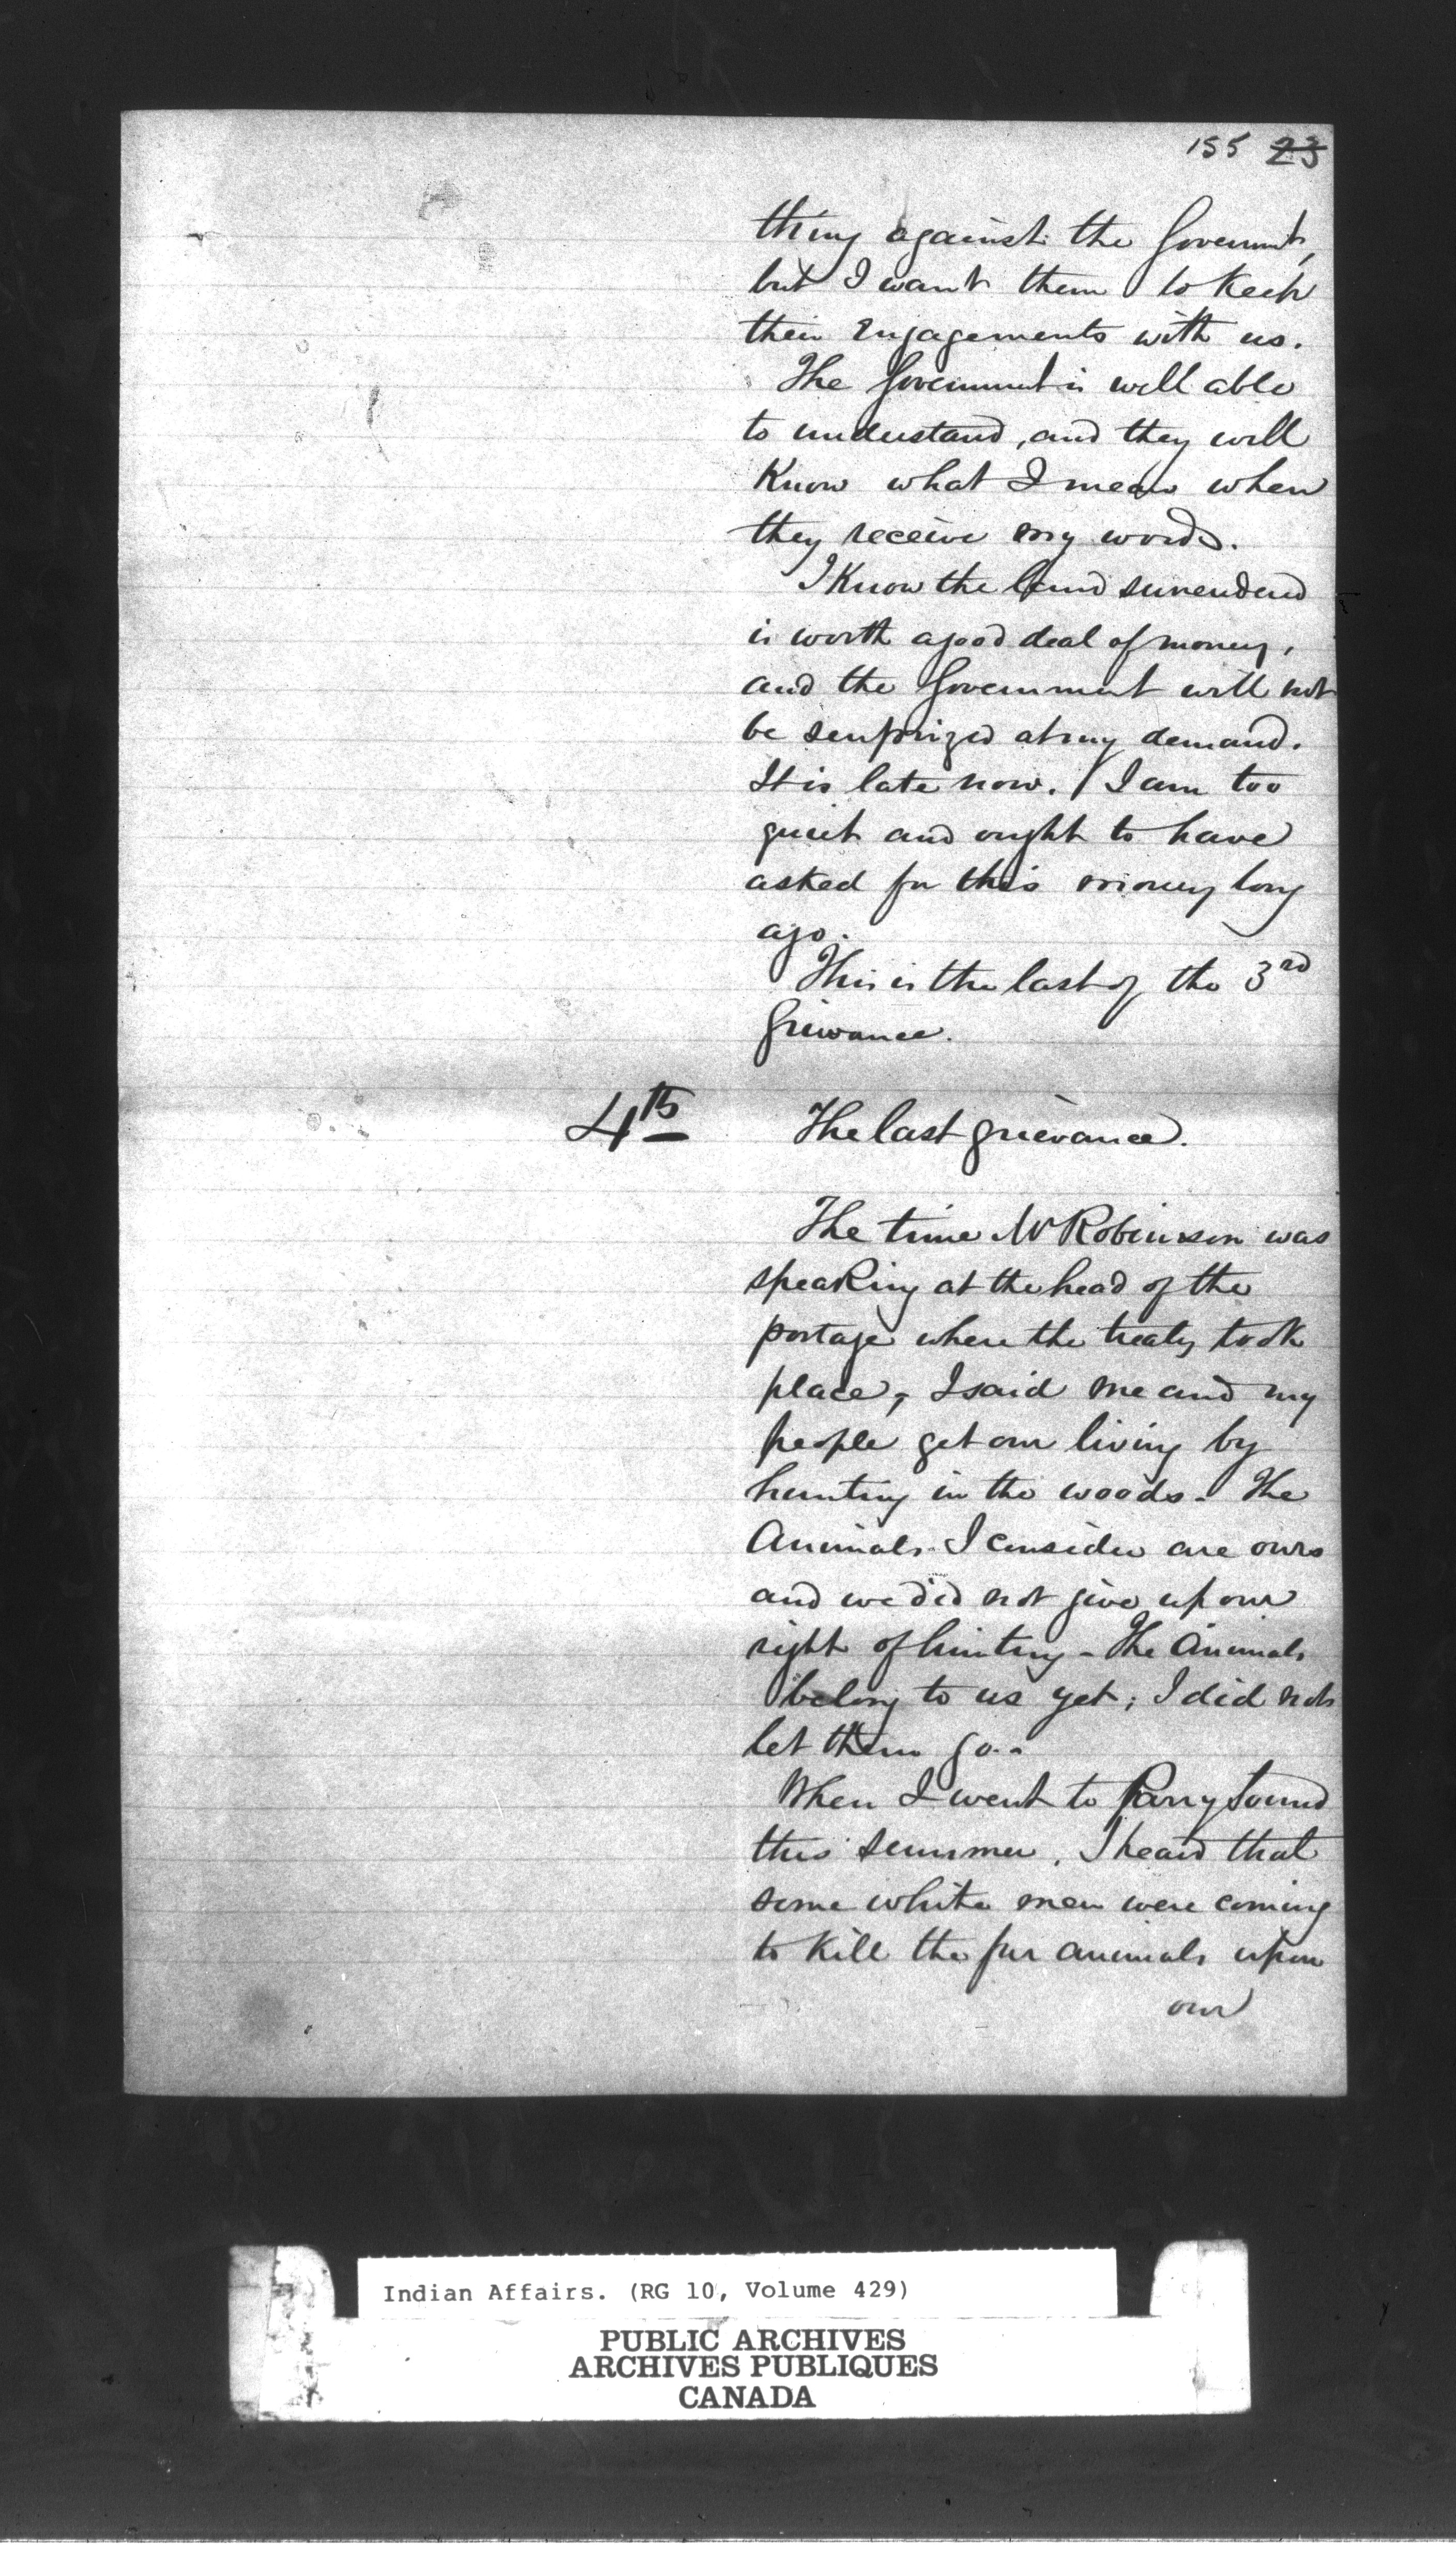 155 23
thing against the Governmt,
but I want them to Keep
their engagements with us.
The Government is well able
to understand, and they will
Know what I mean when
they receive my words.
I Know the land surrendered
is worth a good deal of money,
and the Government will not
be surprized at my demand.
It is late now. I am too
quiet and ought to have
asked for this money long
ago.
This is the last of the 3rd
Grievance.
4th The last grievance.
The time Mr Robinson was
speaking at the head of the
portage where the treaty took
place, I said me and my
people get our living by
hunting in the woods. The
Animals I consider are ours
and we did not give up our
right of hunting - The Animals
belong to us yet; I did not
let them go.-
When I went to Parry Sound
this summer, I heard that
some white men were coming
to Kill the fur animals upon
our
Indian Affairs. (RG 10, Volume 429)
PUBLIC ARCHIVES
ARCHIVES PUBLIQUES
CANADA